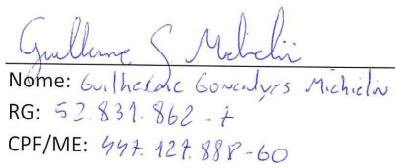 Guilherme G Michielin
Nome: Guilherme Goncalves Michielin
RG: 52.831.862-7
CPF/ME: 447.127.888-60